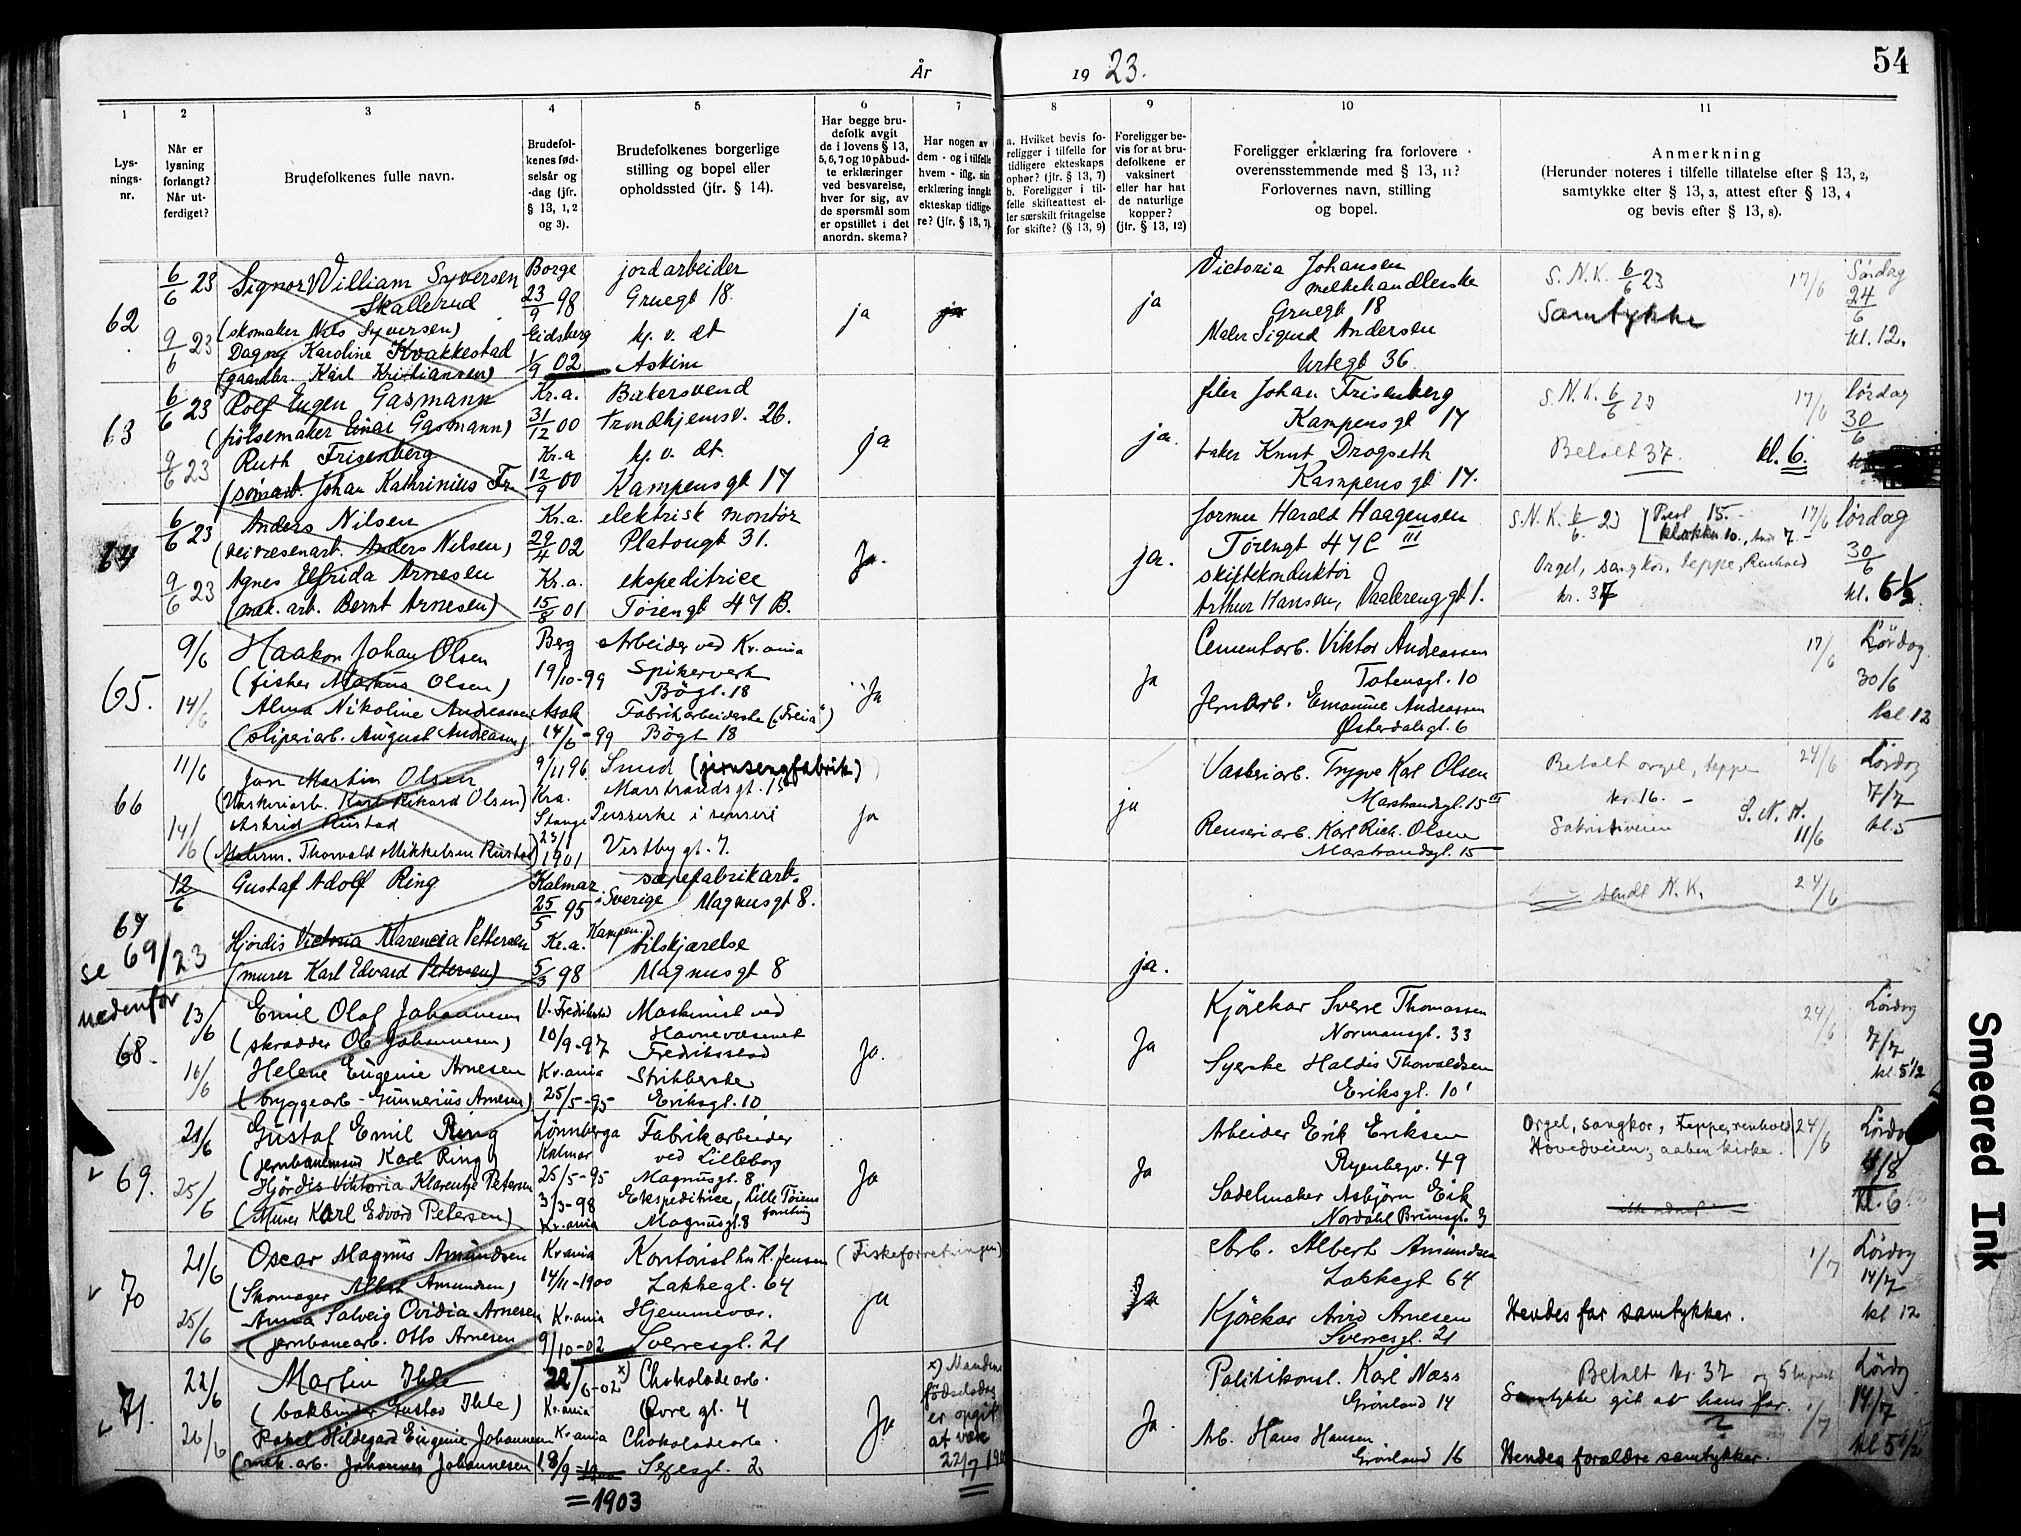 År 1923.
54
1
2
3
4
5
6
7
8
9
10
11
Lys-
nings-
nr.
Når er
lysning
forlangt?
Når ut-
ferdiget?
Brudefolkenes fulle navn.
Brudefol-
kenes fød-
selsår og
-dag (jfr.
§ 13, 1, 2
og 3).
Brudefolkenes borgerlige
stilling og bopel eller
opholdssted (jfr. § 14).
Har begge bru-
defolk avgit
de i lovens § 13,
5, 6, 7 og 10 påbud-
te erklæringer
ved besvarelse,
hver for sig, av
de spørsmål som
er opstillet i det
anordn. skema?
Har nogen av
dem - og i tilfelle
hvem - iflg. sin
erklæring inngått
ekteskap tidlige-
re? (jfr. § 13, 7).
a. Hvilket bevis fo-
religger i tilfelle for
tidligere ekteskaps
ophør? (jfr. § 13, 7)
b. Foreligger i til-
felle skifteattest el-
ler særskilt fritagelse
for skifte? (§ 13, 9)
Foreligger be-
vis for at bru-
defolkene er
vaksinert
eller har hat
de naturlige
kopper?
(jfr. § 13, 12)
Foreligger erklæring fra forlovere
overensstemmende med § 13, 11?
Forlovernes navn, stilling
og bopel.
Anmerkning
(Herunder noteres i tilfelle tillatelse efter § 13, 2,
samtykke efter § 13, 3, attest efter § 13, 4
og bevis efter § 13, 8).
62
6/6 23
9/6 23
Signor William Syversen
Skallerud
(skomaker Nils Syversen)
Dagny Karoline Kvakkestad
(gaardbr. Karl Kristiansen)
Borge
23/9 98
Eidsberg
1/9 02
jordarbeider
Gruegt 18.
hj. v. dt
Askim
ja
ja
ja
Victoria Johansen
melkehandlerske
Gruegt 18
Maler Sigurd Andersen
Urtegt 36
S.N.K. 6/6 23
Samtykke
17/6
Søndag
24/6
kl. 12.
63
6/6 23
9/6 23
Rolf Eugen Gasmann
(pølsemaker Einar Gasmann)
Ruth Frisenberg
(sømarb. Johan Kathrinius Fr.
Kr.a.
31/12 00
Kr.a
12/9 00
Bakersvend
Trondhjemsv. 26.
hj. v. dt.
Kampensgt 17
ja
ja.
filer Johan Frisenberg
Kampensgt 17
baker Knut Dragseth
Kampensgt 17.
S.N.K. 6/6 23
Betalt 37.
17/6
kl. 6.
Lørdag
30/6
64
6/6 23
9/6 23
Anders Nilsen
(veivæsenarb. Anders Nilsen)
Agnes Elfrida Arnesen
(mek. arb. Bernt Arnesen)
Kr.a.
29/4 02
Kr.a.
15/8 01
elektrisk montør
Platougt 31.
ekspeditrice
Tøiengt 47 B.
Ja.
ja.
former Harald Haagensen
Tøiengt 47C III
skiftekonduktør
Arthur Hansen, Vaalerenggt 1.
S.N.K. 6/6. 23
15.
klokker 10.
Orgel, sangkor, teppe, Renhold
kr. 37
17/6
lørdag
30/6
kl. 6 1/2
65.
9/6
14/6
Haakon Johan Olsen
(fisker Markus Olsen)
Alma Nikoline Andreassen
(sliperiarb. August Andreassen)
Berg
19/10-99
Asak
14/6-99
Arbeider ved Kr.ania
Spikerverk
Bøgt. 18
Fabrikarbeiderske ("Freia")
Bøgt 18
Ja
Ja
Cementarb. Viktor Andreassen
Totensgt. 10
Jernarb. Emanuel Andreassen
Østerdalsgt. 6
17/6
Lørdag
30/6
kl. 12
66
11/6
14/6
Jon Martin Olsen
(Væskeriarb. Karl Rikard Olsen)
Astrid Rustad
(Malerm. Thorvald Mikkelsen Rustad)
9/11 96
Kra.
Stange
23/1
1901
Smed (jernsengfabrik)
Marstrandsgt. 15
Presserske i renseri
Vestbygt. 7.
ja
ja
Vaskeriarb. Trygve Karl Olsen
Marstrandsgt. 15 III
Renseriarb. Karl Rich. Olsen
Marstrandsgt. 15
Betalt orgel, teppe
kr. 16. –
Sakristiveien
S.N.K.
11/6
24/6
Lørdag
7/7
kl. 5
67
se 69/23
nedenfor
12/6
Gustaf Adolf Ring
Hjørdis Victoria Klarencia Pettersen
(murer Karl Edvard Petersen)
Kalmar
i Sverige
25/5 95
Kampen.
Kr.a.
5/3 98
sæpefabrikarb.
Magnusgt 8.
pilskjærelse
Magnusgt 8
ja.
sendt N.K.
24/6
68.
13/6
16/6
Emil Olaf Johannesen
(skrædder Ole Johannesen)
Helene Eugenie Arnesen
(bryggearb - Gunnerius Arnesen)
V. Fredrikstad
10/9-97
Kr.ania
25/5-95
Maskinist ved
Havnevæsenet
Fredriksstad
Strikkerske
Eriksgt. 10
Ja.
Ja
Kjørekar Sverre Thomassen
Normansgt. 33
Syerske Haldis Thorvaldsen
Eriksgt. 10
24/6
Lørdag
7/7
kl. 5 1/2
69.
21/6
25/6
Gustaf Emil Ring
(jernbanemand Karl Ring)
Hjørdis Viktoria Klarentse Petersen
(Murer Karl Edvard Petersen)
Lønneberga
Kalmar
25/5-95
3/3-98
Kr.ania
Fabrikarbeider
ved Lilleborg
Magnusgt. 8
Ekspeditrice, Lille Tøiens
forretning
Magnusgt. 8
Ja
Ja
Arbeider Erik Eriksen
Ryenbergv. 49
Sadelmaker Asbjørn Eik
Nordahl Brunsgt. 3
Orgel, sangkor, Teppe, renhold
Hovedveien, aaben kirke.
24/6
Lørdag
4/8
kl. 6
70
21/6
25/6
Oscar Magnus Amundsen
(Skomager Albert Amundsen)
Anna Solveig Ovidia Arnesen
(jernbanearb. Otto Arnesen
Kr.ania
14/11-1900
Kr.ania
9/10-02
Kontorist hos H. Jensen (Fiskeforretningen)
Lakkegt. 64
Hjemmevær.
Sverresgt. 21
ja
Ja
Arb. Albert Amundsen
Lakkegt 64
Kjørekar Arvid Arnesen
Sverresgt. 21
Hendes far samtykker.
1/7
Lørdag
14/7
kl 12
71.
22/6
26/6
Martin Ihle
(bokbinder Gustav Ihle)
Rakel Hildegard Eugenie Johannesen
(mek. arb. Johannes Johannesen
22/6-02 x)
Kr.ania
Kr.ania
18/9-1900
=1903
Chokoladearb.
Øvre gt. 4
Chokoladearb.
Sexesgt. 2
Ja
x) Mandens
fødselsdag
er opgit
at være
22/7 190
Ja.
Politikonst. Karl Næss
Grønland 14
Arb. Hans Hansen
Grønland 16
Betalt kr. 37 og 5
Samtykke git at hans far.
?
Hendes forældre samtykker.
1/7
Lørdag
14/7
kl 5 1/2
Smeared Ink